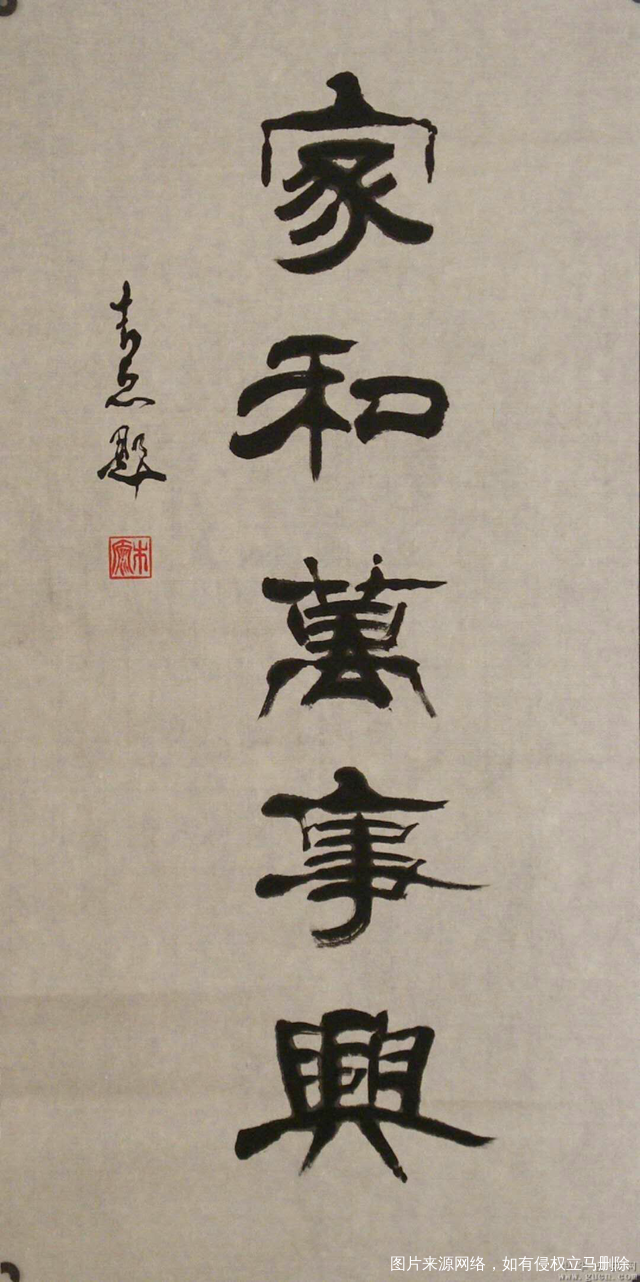 家和萬事興
图片来源网络，如有侵权立马删除